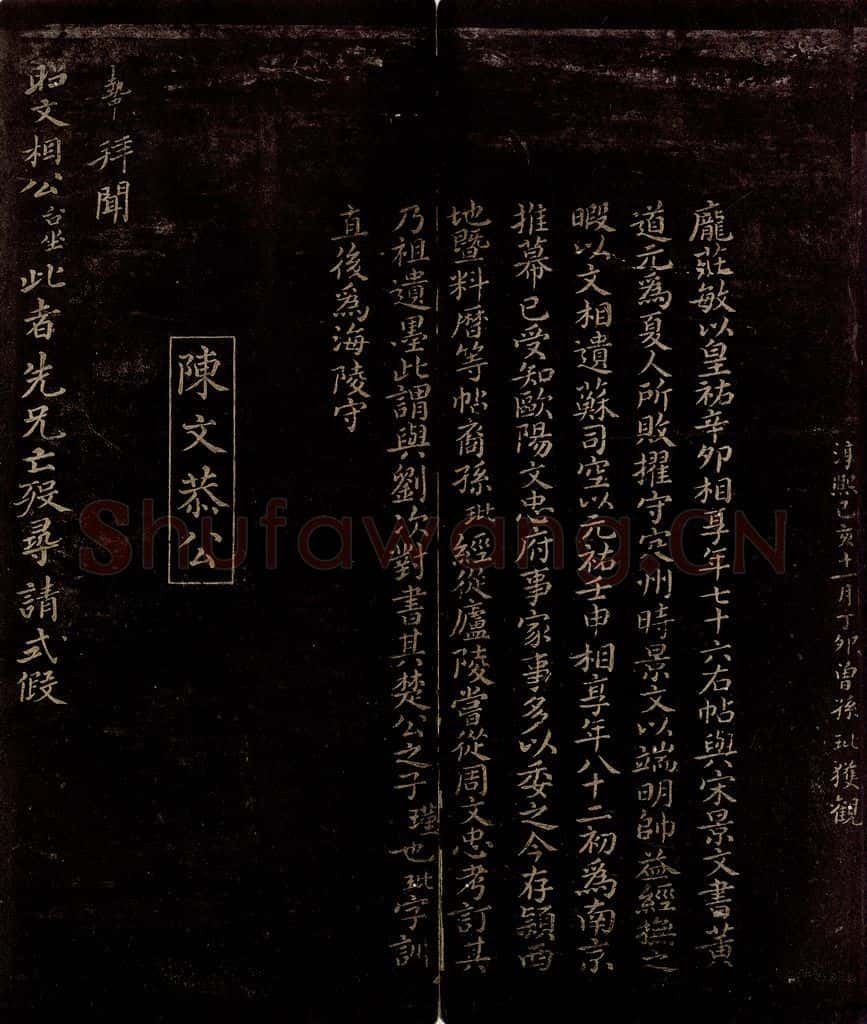 淳熙己亥十一月丁卯曾孫玭獲觀
龐莊敏以皇祐辛卯相享年七十六右帖與宋景文書黃
道元為夏人所敗擢守定州時景文以端明帥益經撫之
暇以文相遺蘇司空以元祐壬申相享年八十二初為南京
推幕已受知歐陽文忠府事家事多以委之今存潁西
地暨料曆等帖裔孫玭經從廬陵嘗從周文忠考訂其
乃祖遺墨此謂與劉次對書其楚公之子瑾也玭字訓
直後為海陵守
陳文恭公
執中拜聞
昭文相公台坐此者先兄亡歿尋請式假
Shufawang.CN